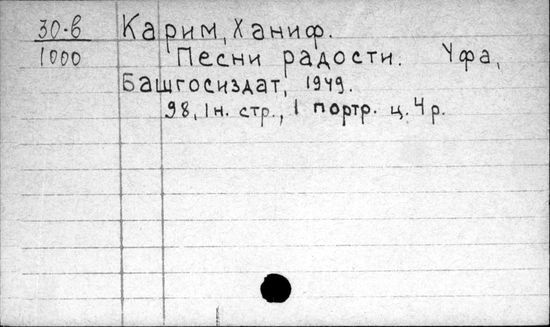 30-в Карим, Ханиф.
1000 Песни радости. Уфа,
Башгосиздат, 1949.
98, 1н. стр., 1 портр. ц. 4 р.